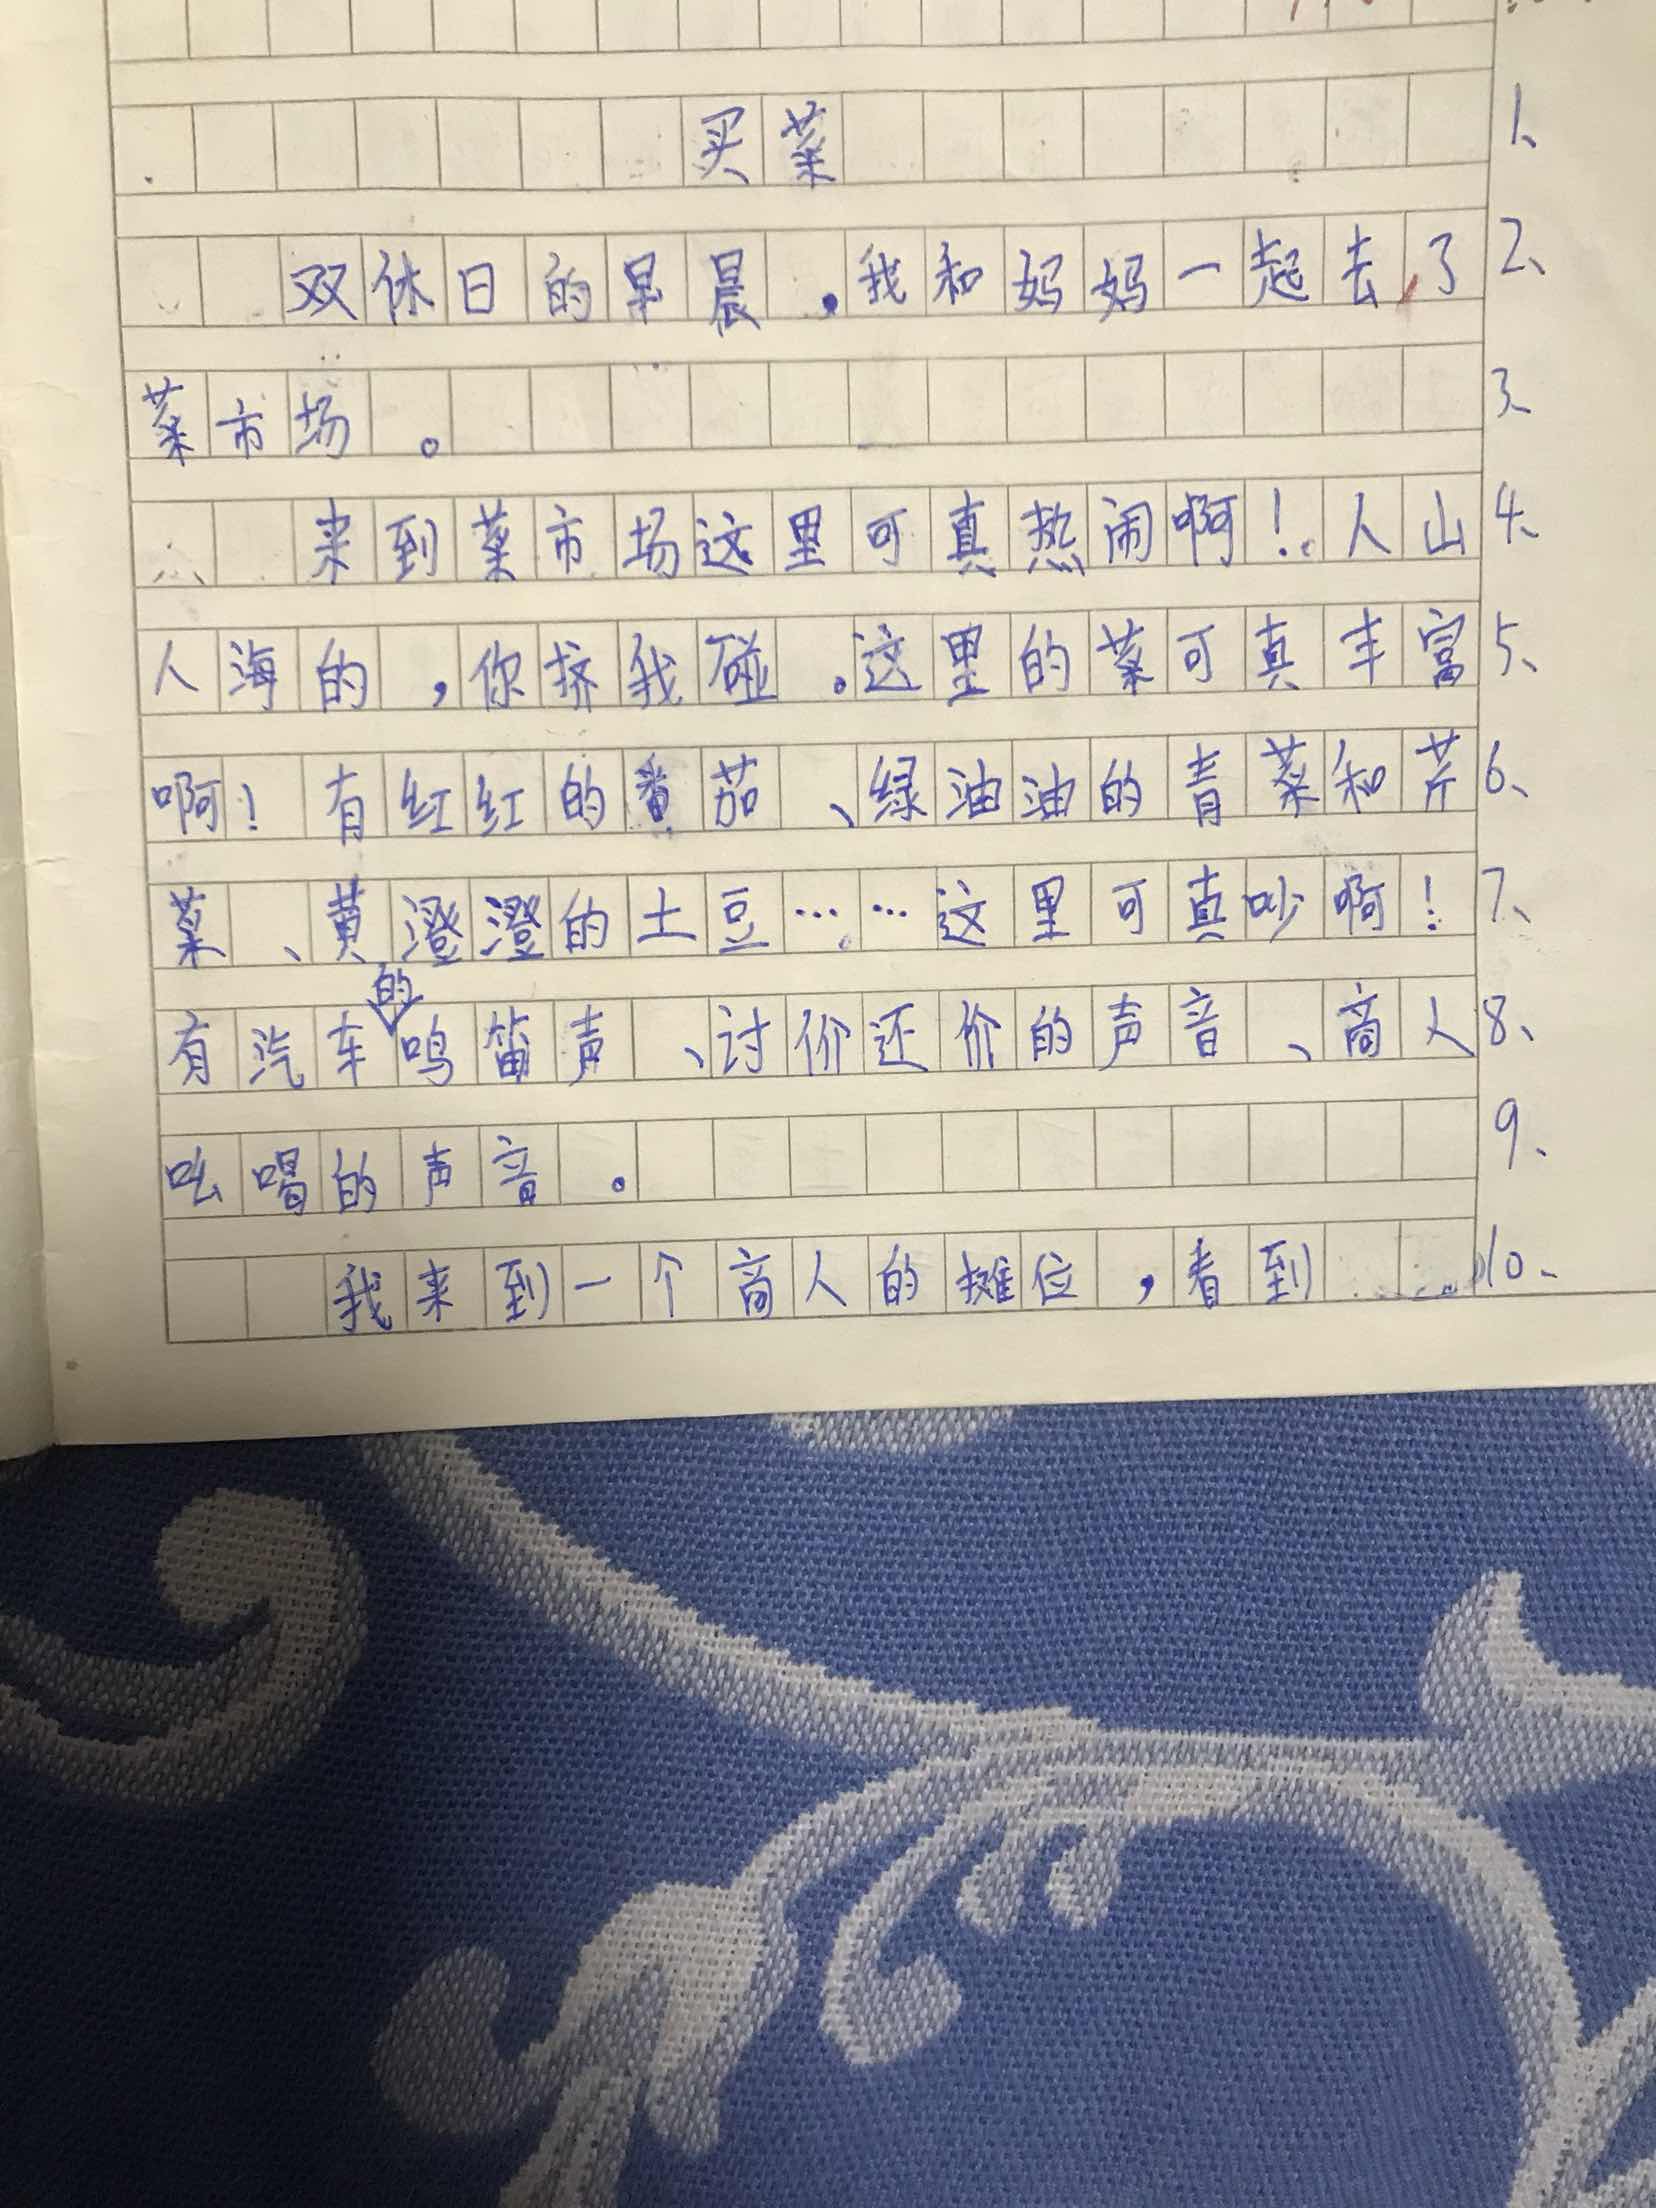 买菜 1、
双休日的早晨,我和妈妈一起去了 2、
菜市场。 3、
来到菜市场这里可真热闹啊!人山 4、
人海的,你挤我碰。这里的菜可真丰富 5、
啊!有红红的番茄、绿油油的青菜和芹 6、
菜、黄澄澄的土豆……这里可真吵啊! 7、
有汽车的鸣笛声、讨价还价的声音、商人 8、
吆喝的声音。 9、
我来到一个商人的摊位,看到 10、